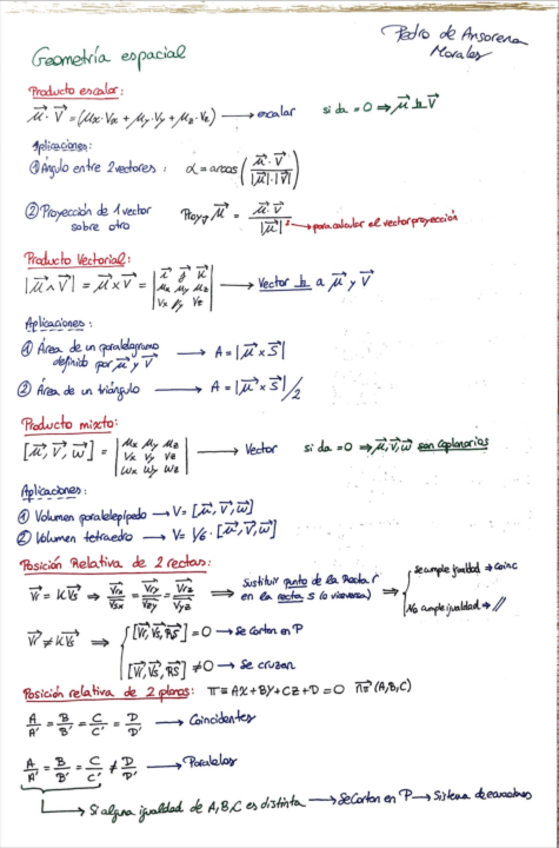 Pedro de Ansorena
Morales
Geometría espacial
Producto escalar:
μ⃗ · V⃗ = (μx·Vx + μy·Vy + μz·Vz) → escalar si da = 0 ⇒ μ⃗ ⊥ V⃗
Aplicaciones:
① Ángulo entre 2 vectores: α = arcos (μ⃗ · V⃗ / |μ⃗|·|V⃗|)
② Proyección de 1 vector
sobre otro
Proy μ⃗ = μ⃗ · V⃗ / |μ⃗|² → para calcular el vector proyección
Producto Vectorial:
|μ⃗ ∧ V⃗| = μ⃗ x V⃗ = | i⃗ j⃗ k⃗ | → Vector ⊥ a μ⃗ y V⃗
μx μy μz
Vx Vy Vz
Aplicaciones:
① Área de un paralelogramo
definido por μ⃗ y V⃗ → A = |μ⃗ x S⃗|
② Área de un triángulo → A = |μ⃗ x S⃗|/2
Producto mixto:
[μ⃗, V⃗, w⃗] = | μx μy μz | → Vector si da = 0 ⇒ μ⃗, V⃗, w⃗ son coplanarios
Vx Vy Vz
wx wy wz
Aplicaciones:
① Volumen paralelepípedo → V = [μ⃗, V⃗, w⃗]
② Volumen tetraedro → V = 1/6 · [μ⃗, V⃗, w⃗]
Posición Relativa de 2 rectas:
Vr⃗ = K Vs⃗ ⇒ Vrx/Vsx = Vry/Vsy = Vrz/Vyz ⇒ Sustituir punto de la Recta r
en la recta s (o viceversa) ⇒ { Se cumple igualdad → Coinc
No cumple igualdad → //
Vr⃗ ≠ K Vs⃗ ⇒ { [Vr⃗, Vs⃗, RS⃗] = 0 → Se cortan en P
[Vr⃗, Vs⃗, RS⃗] ≠ 0 → Se cruzan
Posición relativa de 2 planos: π ≡ Ax + BY + CZ + D = 0 nπ⃗ (A, B, C)
A/A' = B/B' = C/C' = D/D' → Coincidentes
A/A' = B/B' = C/C' ≠ D/D' → Paralelos
↳ Si alguna igualdad de A, B, C es distinta → Se Cortan en P → Sistema de ecuaciones